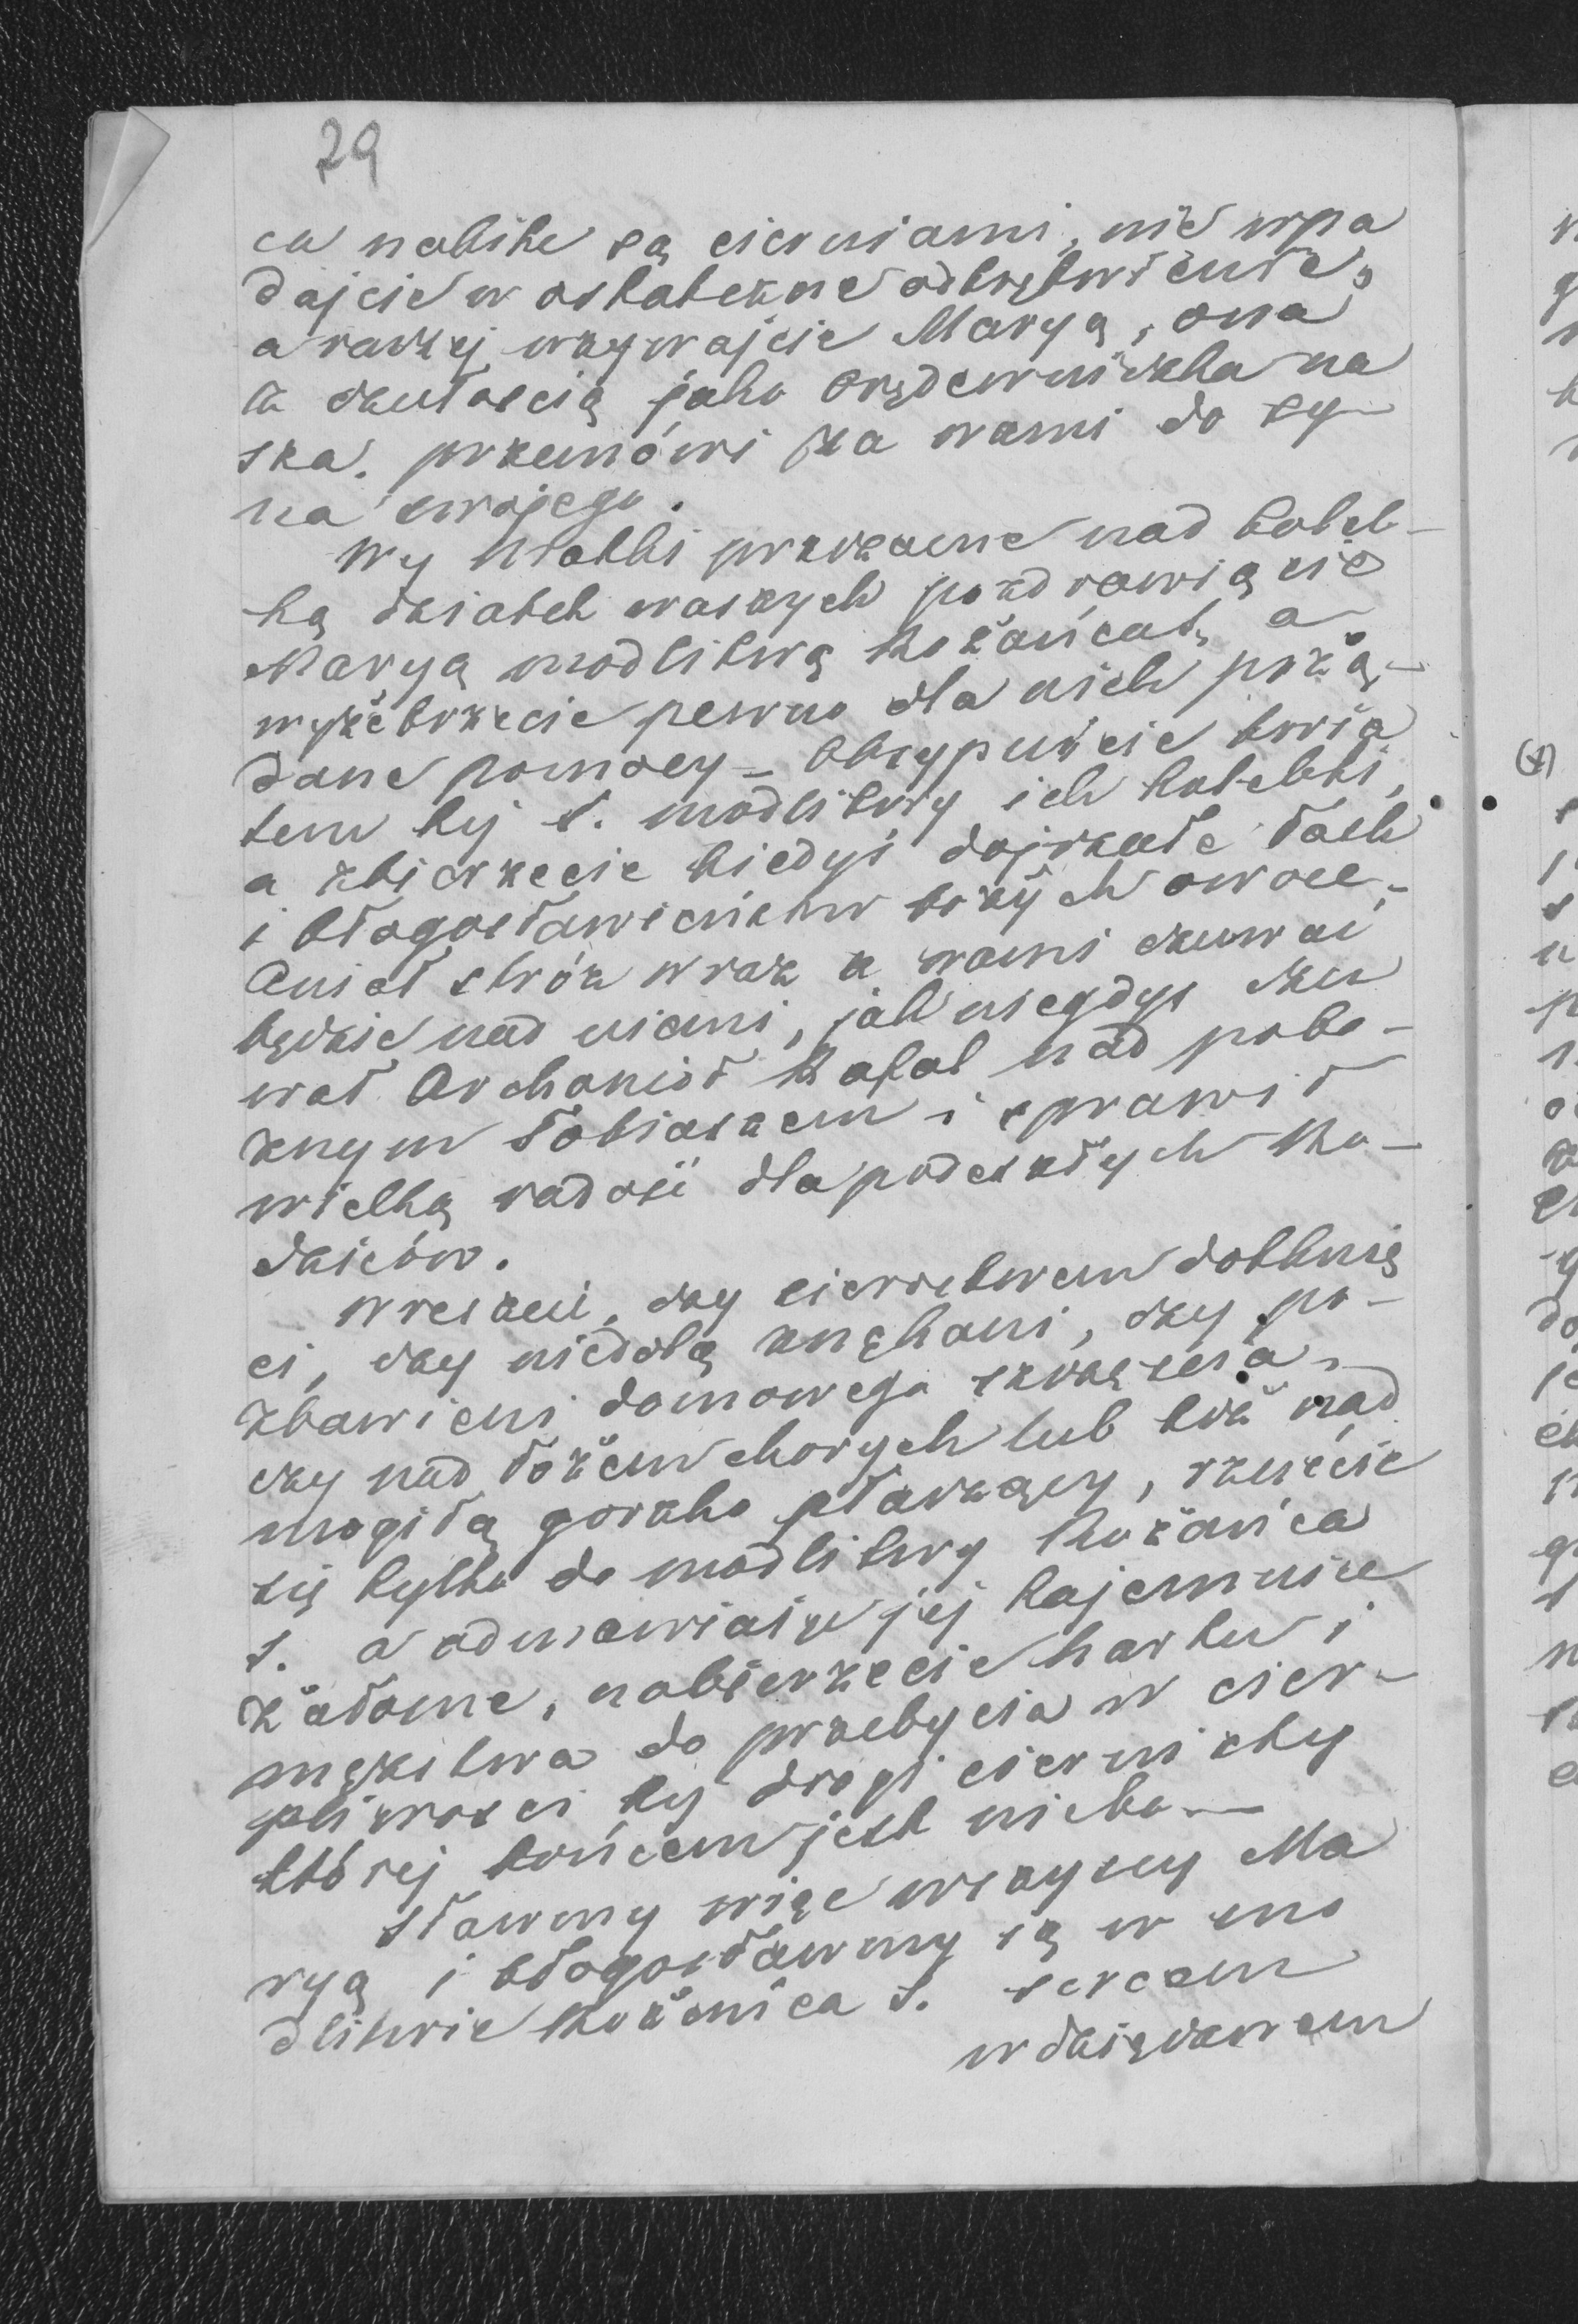 79
ca nabite są cierniami, nie wpa
dajcie w ostateczne odrętwienie,
a raczej wzywajcie Maryą, ona
z czułością jako Orędowniczka na
sza. przemówi za wami do Sy-
na swojego.
Wy Matki przczacne nad koleb-
ką dziatek waszych pozdrawiacie
Maryą modlitwą Różańcatą a
wyżebrzecie pewno dla nich pożą-
dane pomocy – Obsypujcie kwia
tem tej S. modlitwy ich kolebki,
a zbierzecie kiedyś dojrzałe łask
i błogosławieństw bożych owoce.
Anioł stróż wraz z wami czuwać
będzie nad niemi, jak niegdyś czu
wał Archanioł Rafał nad pobo-
żnym Tobiaszem i sprawił
wielką radość dla podeszłych Ro-
dziców.
Wreszcie, czy sieroctwem dotknię
ci, czy niedolą znękani, czy po-
zbawieni domowego szczęścia,
czy nad łożem chorych lub też nad
mogiłą gorzko płaczący, rzućcie
się tylko do modlitwy Różańca
S. a odmawiając jej tajemnice
żałosne, nabierzecie hartu i
męztwa do przebycia w cier-
pliwości tej drogi ciernistej
której końcem jest niebo. —
Sławmy więc wszyscy Ma
ryą i błogosławmy ją w mo
dlitwie Różańca S. sercem
wdzięcznem
(x)